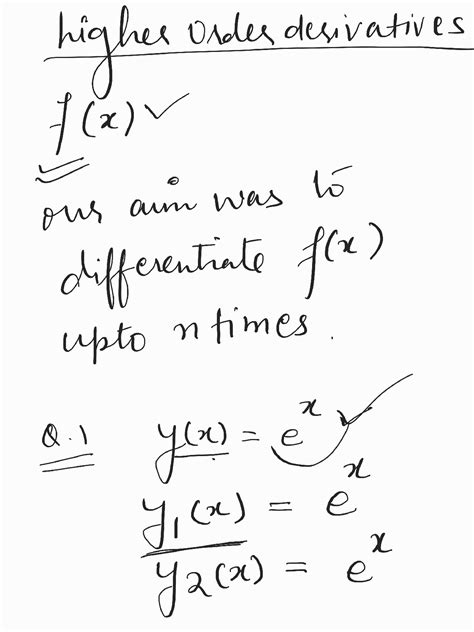 higher order derivatives
f(x) ✓
our aim was to
differentiate f(x)
upto n times.
Q.1 y(x) = e^x ✓
y₁(x) = e^x
y₂(x) = e^x